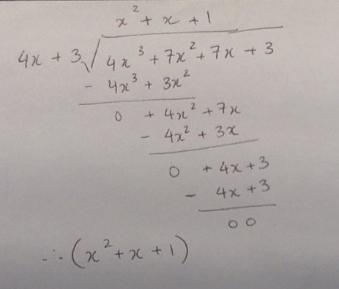 x² + x + 1
4x + 3 √ 4x³ + 7x² + 7x + 3
- 4x³ + 3x²
0 + 4x² + 7x
- 4x² + 3x
0 + 4x + 3
- 4x + 3
0 0
∴ (x² + x + 1)